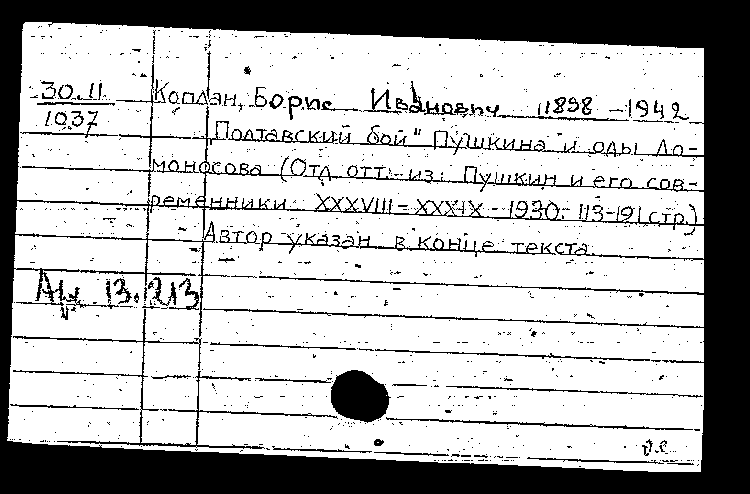 30.II Коплан, Борис Иванович 1898 - 1942
1037
"Полтавский бой" Пушкина и оды Ло-
моносова (Отд. отт. из: Пушкин и его сов-
ременники. XXXVIII - XXXIX - 1930. 113-121 стр.)
Автор указан в конце текста.
13.213